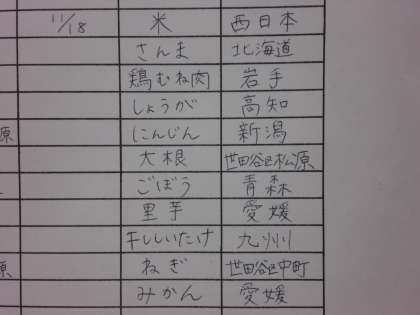 11/18 米 西日本
さんま 北海道
鶏むね肉 岩手
しょうが 高知
原 にんじん 新潟
大根 世田谷区松原
ごぼう 青森
里芋 愛媛
干ししいたけ 九州
原 ねぎ 世田谷区中町
みかん 愛媛